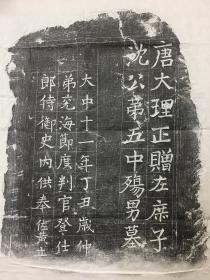 唐大理正贈左庶子
沈公第五中殤男墓
大中十一年丁丑歲仲
弟兖海節度判官登仕
郎侍御史内供奉